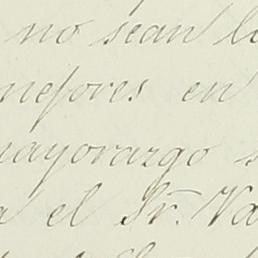 no sean l
mejores en
mayorazgo s
a el Sr. Va